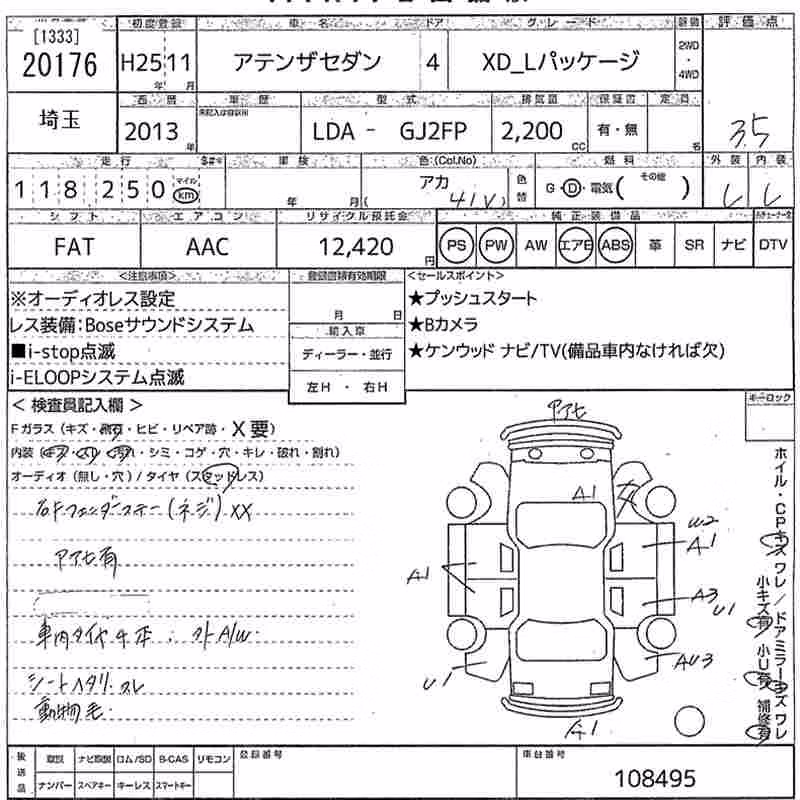 [1333]
20176
初度登録 車名 ドア グレード 評価点
H25 11 アテンザセダン 4 XD_Lパッケージ 2WD・4WD
年 月
埼玉 西暦 車歴 型式 排気量 保証書 定員
未記入は自家用
2013年 LDA - GJ2FP 2,200 CC 有・無 名 3.5
走行 車検 色:(Col.No) 燃料 外装 内装
118250 マイル km 年 月 アカ ( 41V ) 色替 G・D・電気( その他 )
シフト エアコン リサイクル預託金 純正装備品
FAT AAC 12,420円 PS PW AW エアB ABS 革 SR ナビ DTV
<注意事項> 登録書類有効期限 <セールスポイント>
※オーディオレス設定 ★プッシュスタート
レス装備:Boseサウンドシステム 月 日 ★Bカメラ
■i-stop点滅 輸入車 ★ケンウッド ナビ/TV(備品車内なければ欠)
ディーラー・並行
i-ELOOPシステム点滅
左H ・ 右H
< 検査員記入欄 > キーロック
Fガラス(キズ・飛石・ヒビ・リペア跡・X要)
内装(キズ・スリ・汚れ・シミ・コゲ・穴・キレ・破れ・割れ)
オーディオ(無し・穴)/タイヤ(スタッドレス)
右Fフェンダーステー(ネジ)XX
アアセ有
車内タイヤ4本:スト A/W
シートヘタリ.スレ
動物毛
アアセ
A1
U2
A1
A1
A3
U1
U1
AU3
A1
ホイル・CPキズ ワレ/ドアミラーキズ ワレ
小キズ有 小U有 補修有
後送品 取説 ナビ取説 ロム/SD B-CAS リモコン 登録番号 車台番号
ナンバー スペアキー キーレス スマートキー 108495